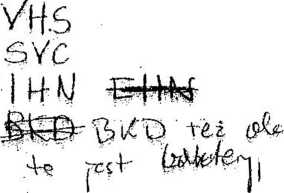 VHS
SVC
IHN EHN
BKD BKD też ale
to jest bakteryj